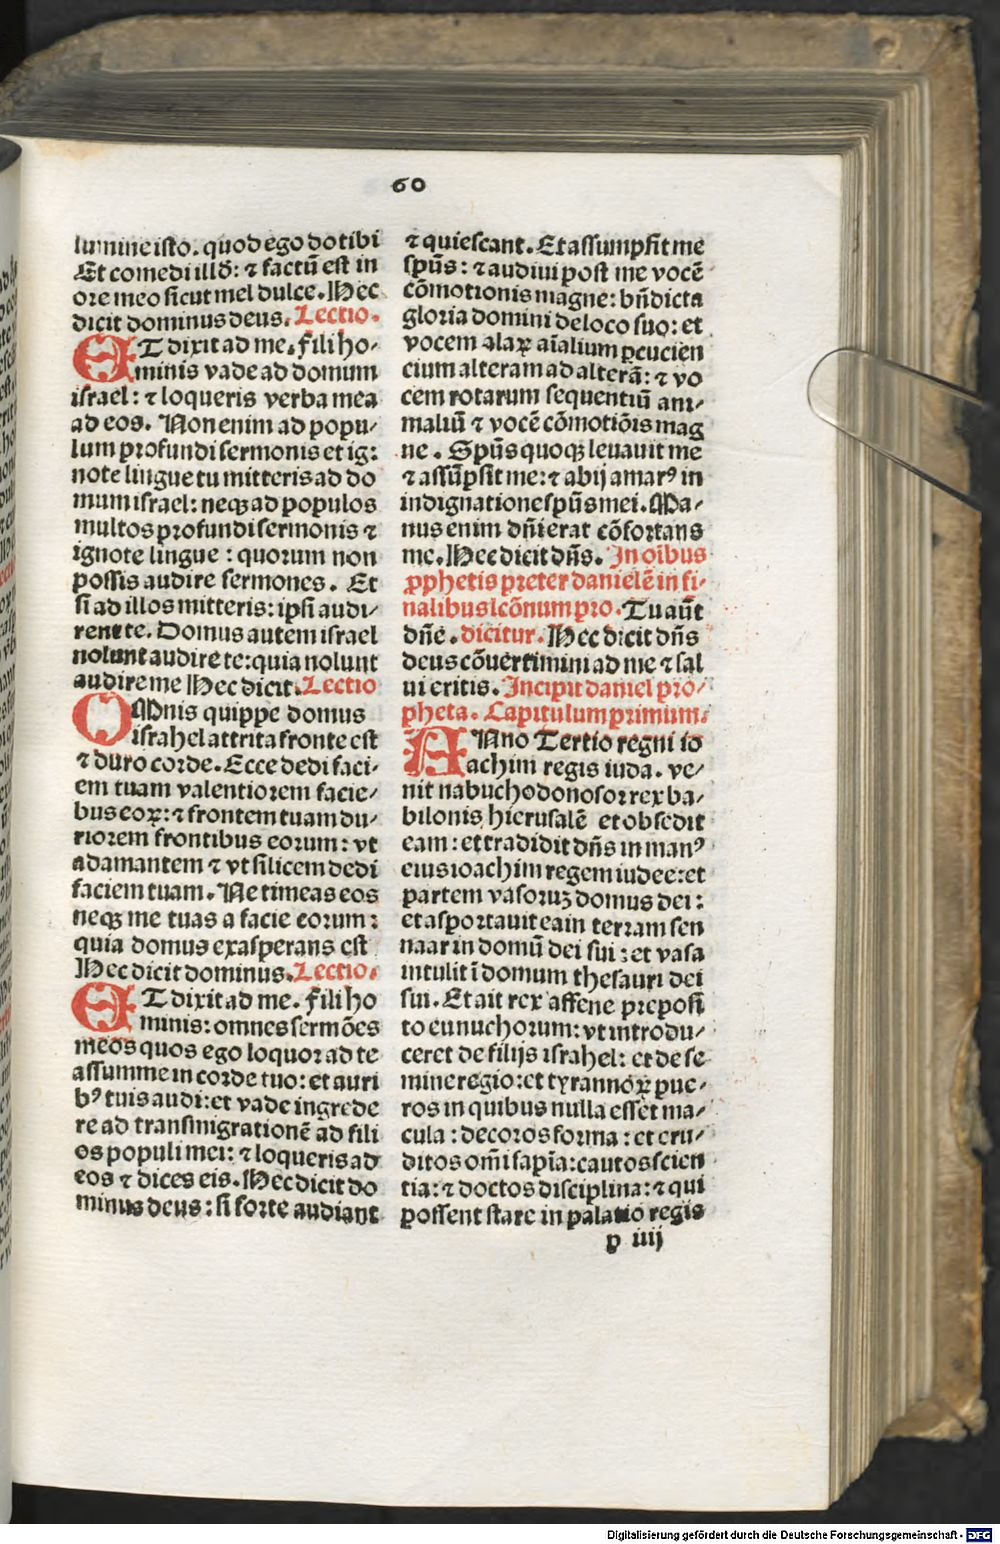 60
lumine isto. quod ego do tibi
Et comedi illd̄: ⁊ factū est in
ore meo sicut mel dulce. Hec
dicit dominus deus. Lectio.
ET dixit ad me. fili ho⸗
minis vade ad domum
israel: ⁊ loqueris verba mea
ad eos. Non enim ad popu⸗
lum profundi sermonis et ig:
note lingue tu mitteris ad do
mum israel: neqꝫ ad populos
multos profundi sermonis ⁊
ignote lingue: quorum non
possis audire sermones. Et
si ad illos mitteris: ipsi audi⸗
rent te. Domus autem israel
nolunt audire te: quia nolunt
audire me Hec dicit. Lectio
OMnis quippe domus
israhel attrita fronte est
⁊ duro corde. Ecce dedi faci⸗
em tuam valentiorem facie⸗
bus eoꝝ: ⁊ frontem tuam du⸗
riorem frontibus eorum: vt
adamantem ⁊ vt silicem dedi
faciem tuam. Ne timeas eos
neqꝫ me tuas a facie eorum:
quia domus exasperans est
Hec dicit dominus. Lectio.
ET dixit ad me. fili ho
minis: omnes sermōes
meos quos ego loquor ad te
assumme in corde tuo: et auri
bꝰ tuis audi: et vade ingrede
re ad transmigrationē ad fili
os populi mei: ⁊ loqueris ad
eos ⁊ dices eis. Hec dicit do
minus deus: si forte audiant
⁊ quiescant. Et assumpsit me
spūs: ⁊ audivi post me vocē
cōmotionis magne: bn̄dicta
gloria domini de loco suo: et
vocem alaꝝ aīalium ꝑcucien
cium alteram ad alterā: ⁊ vo
cem rotarum sequentiū ani⸗
maliū ⁊ vocē cōmotiōis mag
ne. Spūs quoqꝫ levauit me
⁊ assūpsit me: ⁊ abij amarꝰ in
indignatione spūs mei. Ma⸗
nus enim dn̄i erat cōfortans
me. Hec dicit dn̄s. In oībus
ꝓphetis preter danielē in fi⸗
nalibus lcōnum pro. Tu aūt
dn̄e. dicitur. Hec dicit dn̄s
deus cōuertimini ad me ⁊ sal
ui eritis. Incipit daniel pro⸗
pheta. Capitulum primum.
ANno Tertio regni io
achim regis iuda. ve⸗
nit nabuchodonosor rex ba⸗
bilonis hierusalē et obsedit
eam: et tradidit dn̄s in manꝰ
eius ioachim regem iudee: et
partem vasoruꝫ domus dei:
et asportauit ea in terram sen
naar in domū dei sui: et vasa
intulit ī domum thesauri dei
sui. Et ait rex affene preposi
to eunuchorum: vt introdu⸗
ceret de filijs israhel: et de se
mine regio: et tyrannōꝝ pue⸗
ros in quibus nulla esset ma⸗
cula: decoros forma: et eru⸗
ditos om̄i sapīa: cautos scien
tia: ⁊ doctos disciplina: ⁊ qui
possent stare in palatio regis
p iiij
Digitalisierung gefördert durch die Deutsche Forschungsgemeinschaft - DFG